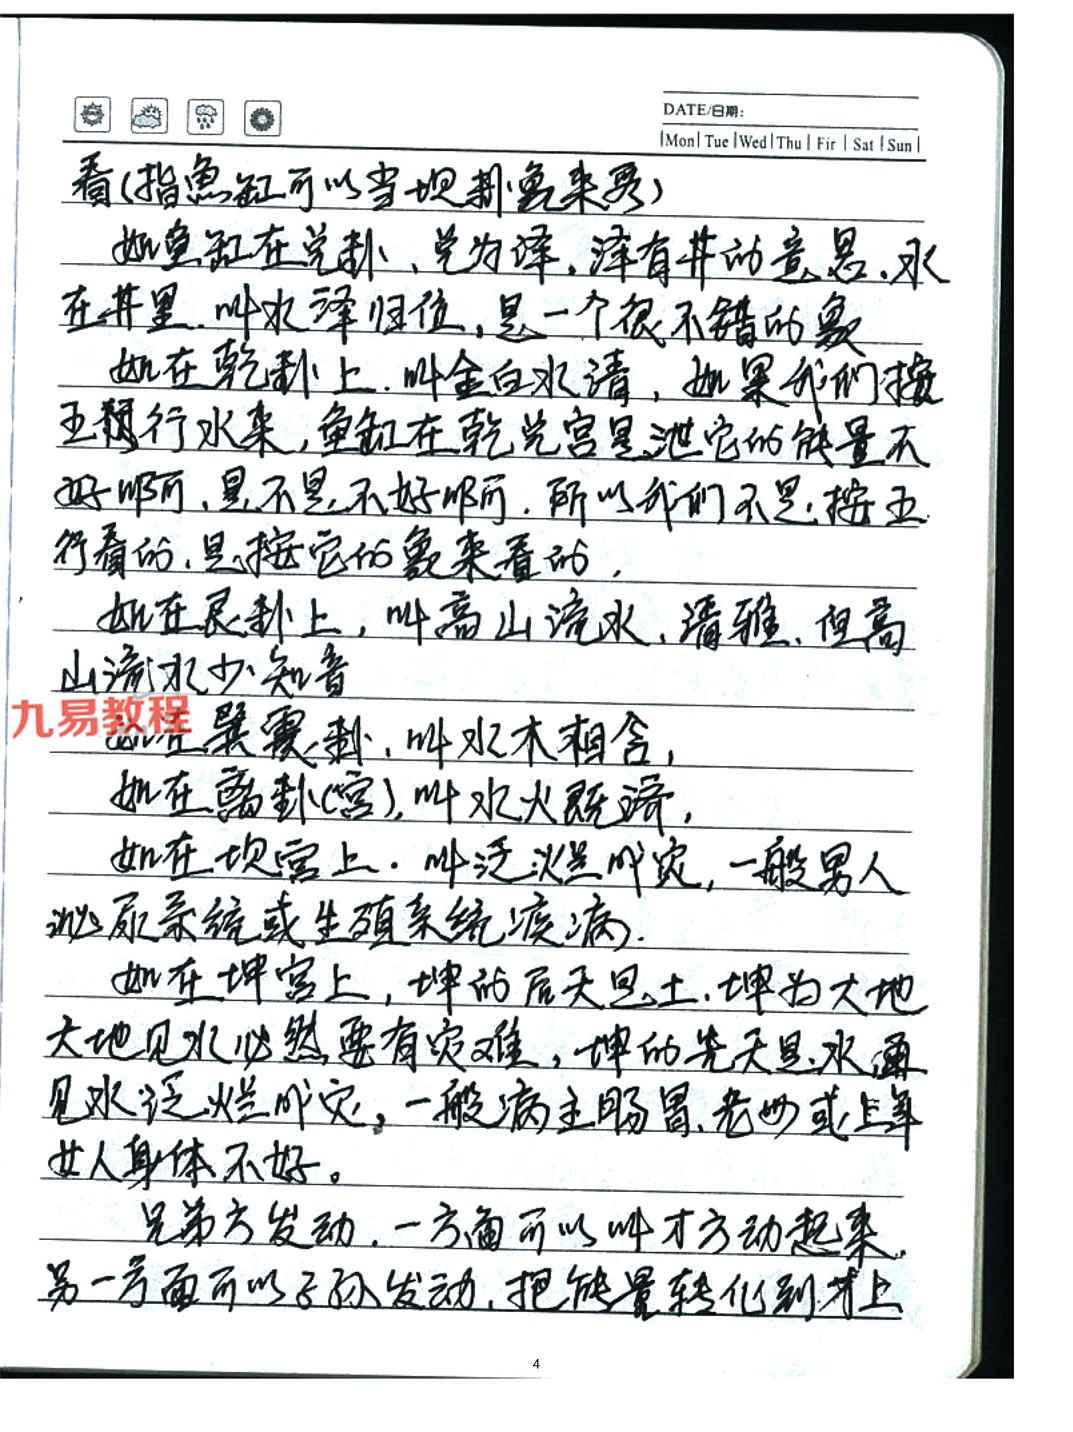 DATE/日期:
Mon Tue Wed Thu Fir Sat Sun
看(指魚缸可以当坎卦象来看)
如鱼缸在兑卦、兑为泽,泽有井的意思、水
在井里、叫水泽归位,是一个很不错的象
如在乾卦上、叫金白水清,如果我们按
五行水来,鱼缸在乾兑宫是泄它的能量不
好啊、是不是不好啊、所以我们不是按五
行看的、是按它的象来看的、
如在艮卦上,叫高山流水、清雅、但高
山流水少知音
九易教程
如在巽震卦、叫水木相含,
如在离卦(宫),叫水火既济,
如在坎宫上、叫泛烂成灾,一般男人
泌尿系统或生殖系统疾病).
如在坤宫上,坤的后天是土、坤为大地
大地见水必然要有灾难,坤的先天是水遇
见水泛烂成灾,一般病主肠胃、老母或上年
女人身体不好。
兄弟方发动、一方面可以叫才方动起来,
另一方面可以子孙发动、把能量转化到才上
4